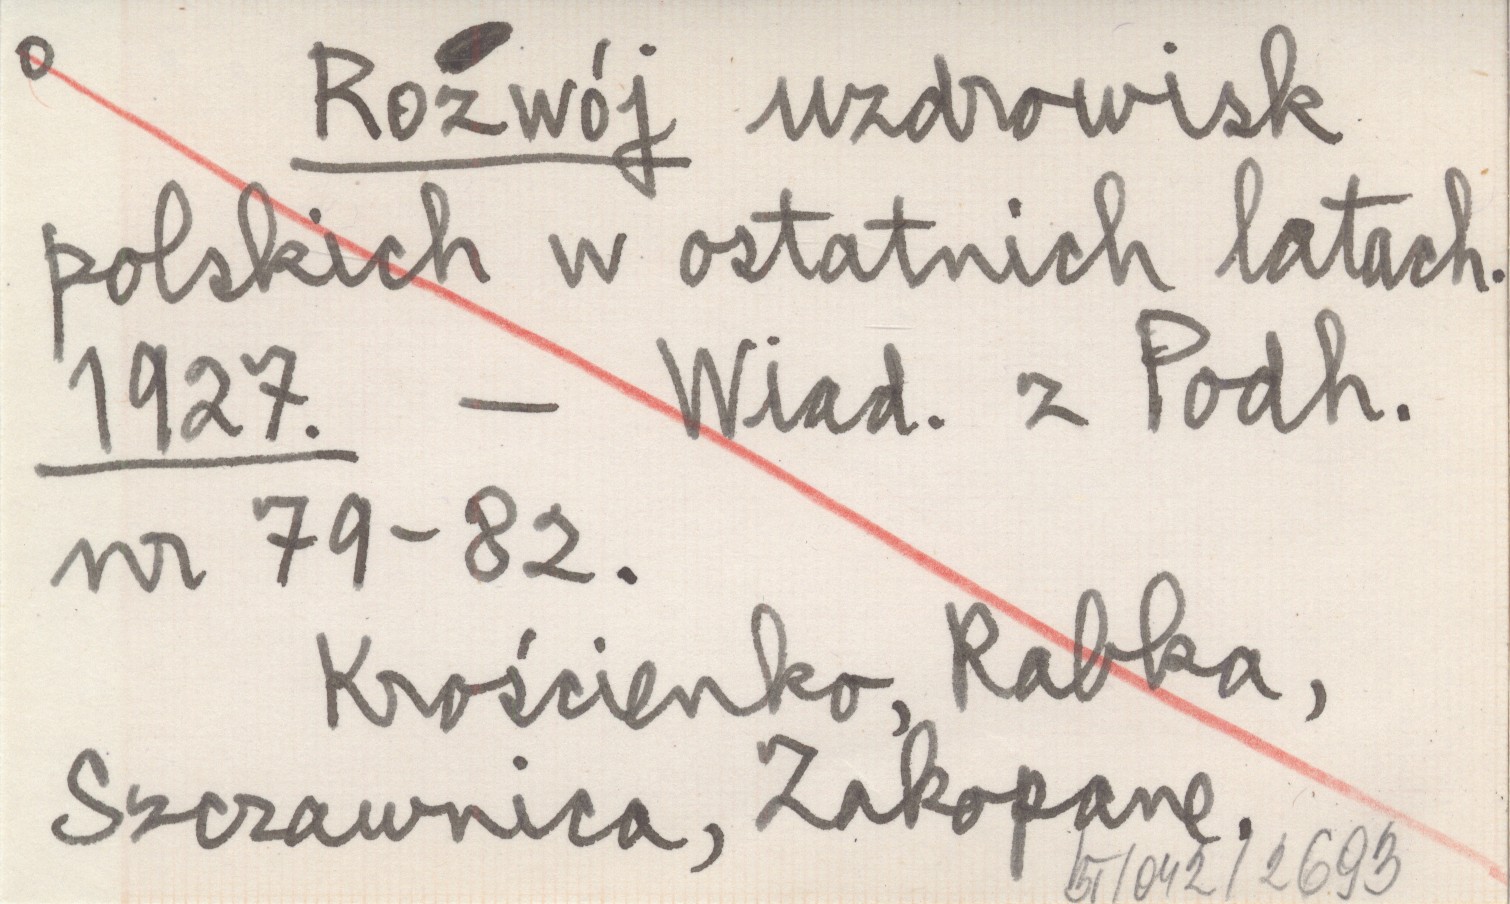 Rozwój uzdrowisk
polskich w ostatnich latach.
1927. — Wiad. z Podh.
nr 79-82.
Krościenko, Rabka,
Szczawnica, Zakopane.
/042/2693